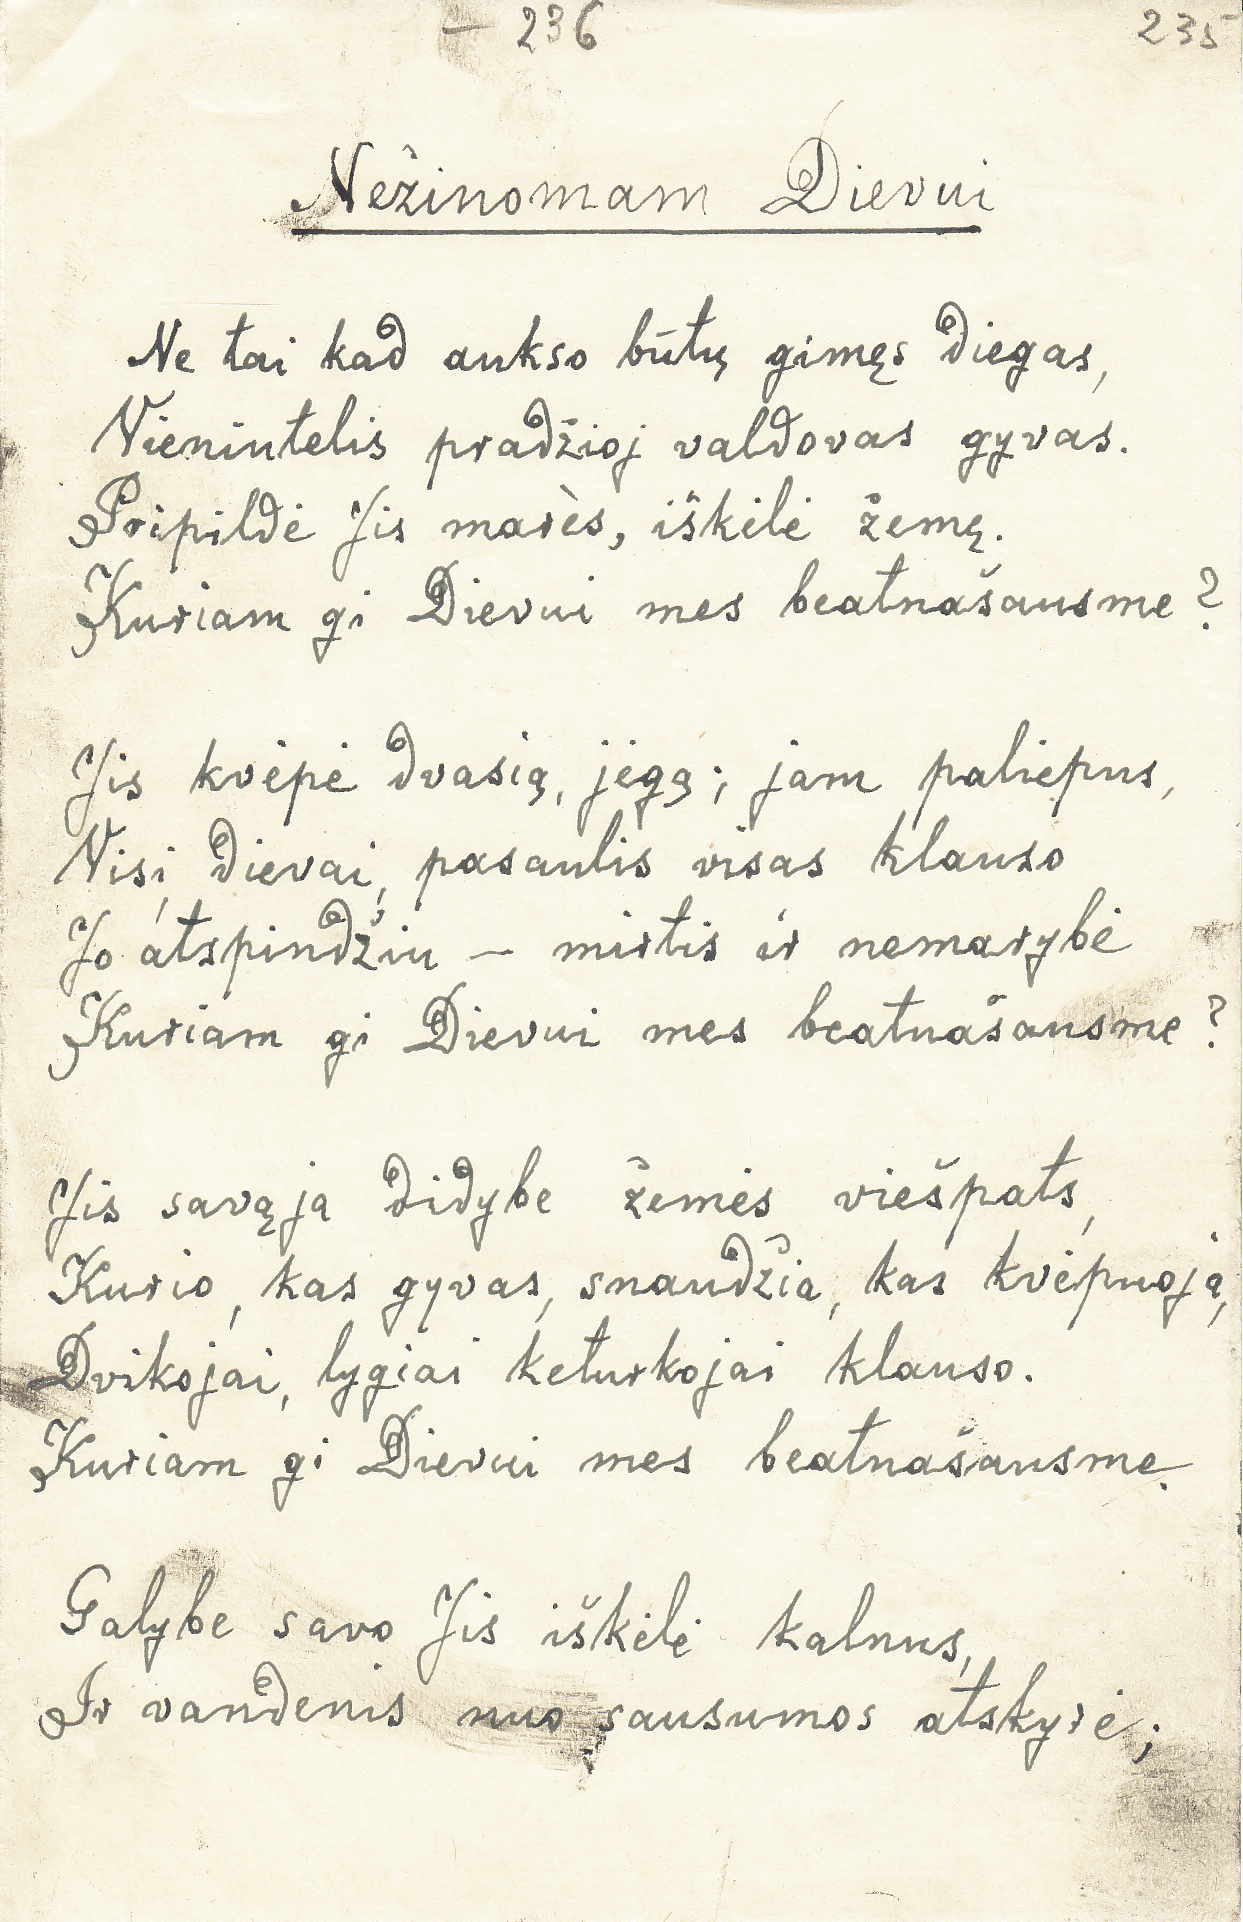 – 236
235
Nežinomam Dievui
Ne tai kad aukso būtų gimęs diegas,
Vienintelis pradžioj valdovas gyvas.
Pripildė Jis marės, iškėlė žemę.
Kuriam gi Dievui mes beatnašausme?
Jis kvėpė dvasią, jėgą; jam paliepus,
Visi dievai, pasaulis visas klauso
Jo atspindžiu – mirtis ir nemarybė
Kuriam gi Dievui mes beatnašausme?
Jis savąja didybe žemės viešpats,
Kurio, kas gyvas, snaudžia, kas kvėpuoja,
Dvikojai, lygiai keturkojai klauso.
Kuriam gi Dievui mes beatnašausme.
Galybe savo Jis iškėlė kalnus,
Ir vandenis nuo sausumos atskyrė;